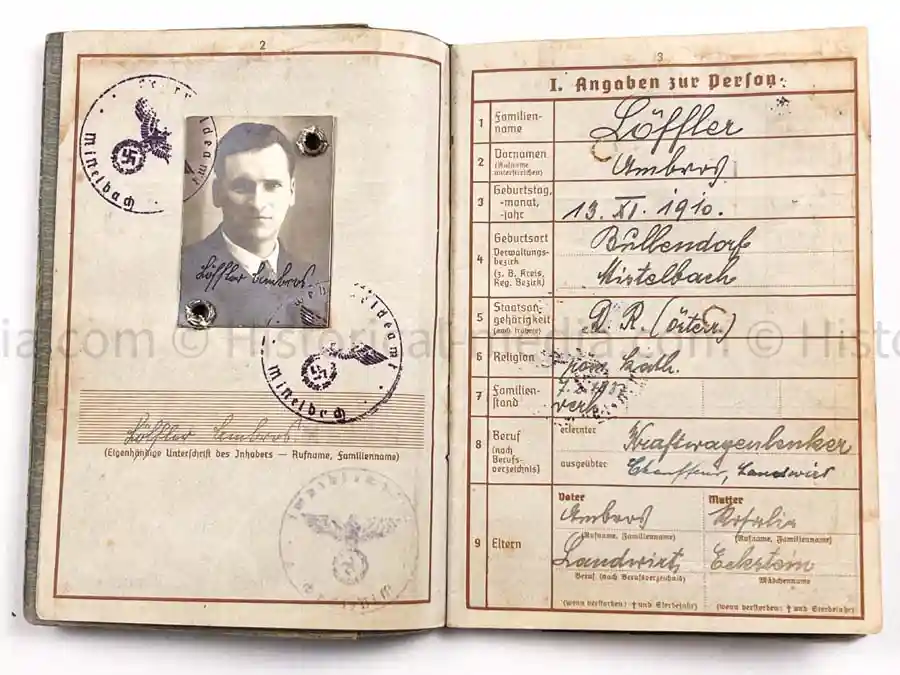 2
Mistelbach
Löffler Ambros
Wehrmeldeamt
Mistelbach
Löffler Ambros
(Eigenhändige Unterschrift des Inhabers — Rufname, Familienname)
3
I. Angaben zur Person
1 Familienname Löffler
2 Vornamen (Rufname unterstreichen) Ambros
3 Geburtstag, -monat, -jahr 13. XI. 1910.
4 Geburtsort Verwaltungsbezirk (z. B. Kreis, Reg. Bezirk) Bullendorf
Mistelbach
5 Staatsangehörigkeit (auch frühere) D. R. (österr.)
6 Religion röm. kath.
7 Familienstand verh.
8 Beruf (nach Berufsverzeichnis) erlernter Kraftwagenlenker
ausgeübter Chauffeur, Landwirt
9 Eltern
Vater Mutter
Ambros Rosalia
(Rufname, Familienname) (Rufname, Familienname)
Landwirt Eckstein
Beruf (nach Berufsverzeichnis) Mädchenname
(wenn verstorben: † und Sterbejahr) (wenn verstorben: † und Sterbejahr)
ia.com © Historical-media.com © Histo